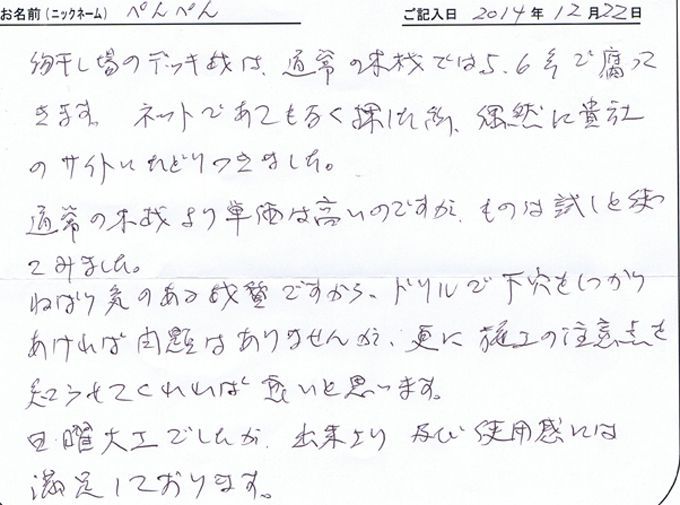 お名前(ニックネーム) ぺんぺん ご記入日 2014年12月22日
物干し場のデッキ材は、通常の木材では5.6年で腐って
きます。ネットであてもなく探した所、偶然に貴社
のサイトにたどりつきました。
通常の木材より単価は高いのですが、ものは試しと使っ
てみました。
ねばり気のある材質ですから、ドリルで下穴をしっかり
あければ問題はありませんが、更に施工の注意点を
知らせてくれれば良いと思います。
日曜大工でしたが、出来上り及び使用感には
満足しております。